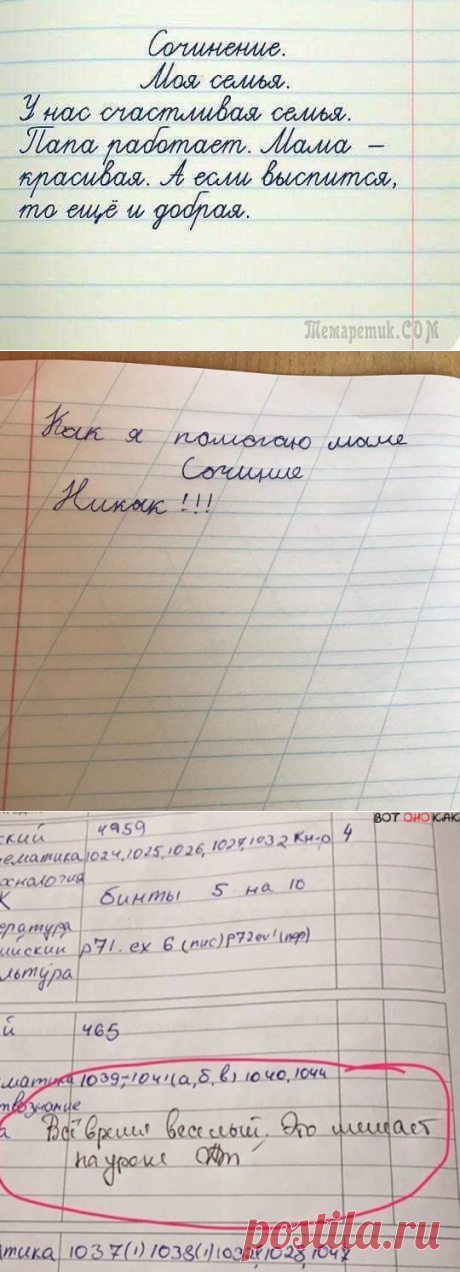 Сочинение.
Моя семья.
У нас счастливая семья.
Папа работает. Мама –
красивая. А если выспится,
то ещё и добрая.
Темаретик.COM
Как я помогаю маме
Сочиние
Никак!!!
ВОТ ОНО КАК
ский 4959 4
тематика 1024, 1025, 1026, 1027, 1032 Кн-р
хнология
К бинты 5 на 10
ература
ийский р71. ex 6 (пис) р72 ex 1 (пер)
льтура
й 465
матика 1039, 1041 (а, б, в) 1040, 1044
твознание
а Всё время веселый. Это мешает
на уроке
тика 1037(1) 1038(1) 1028, 1047
postila.ru